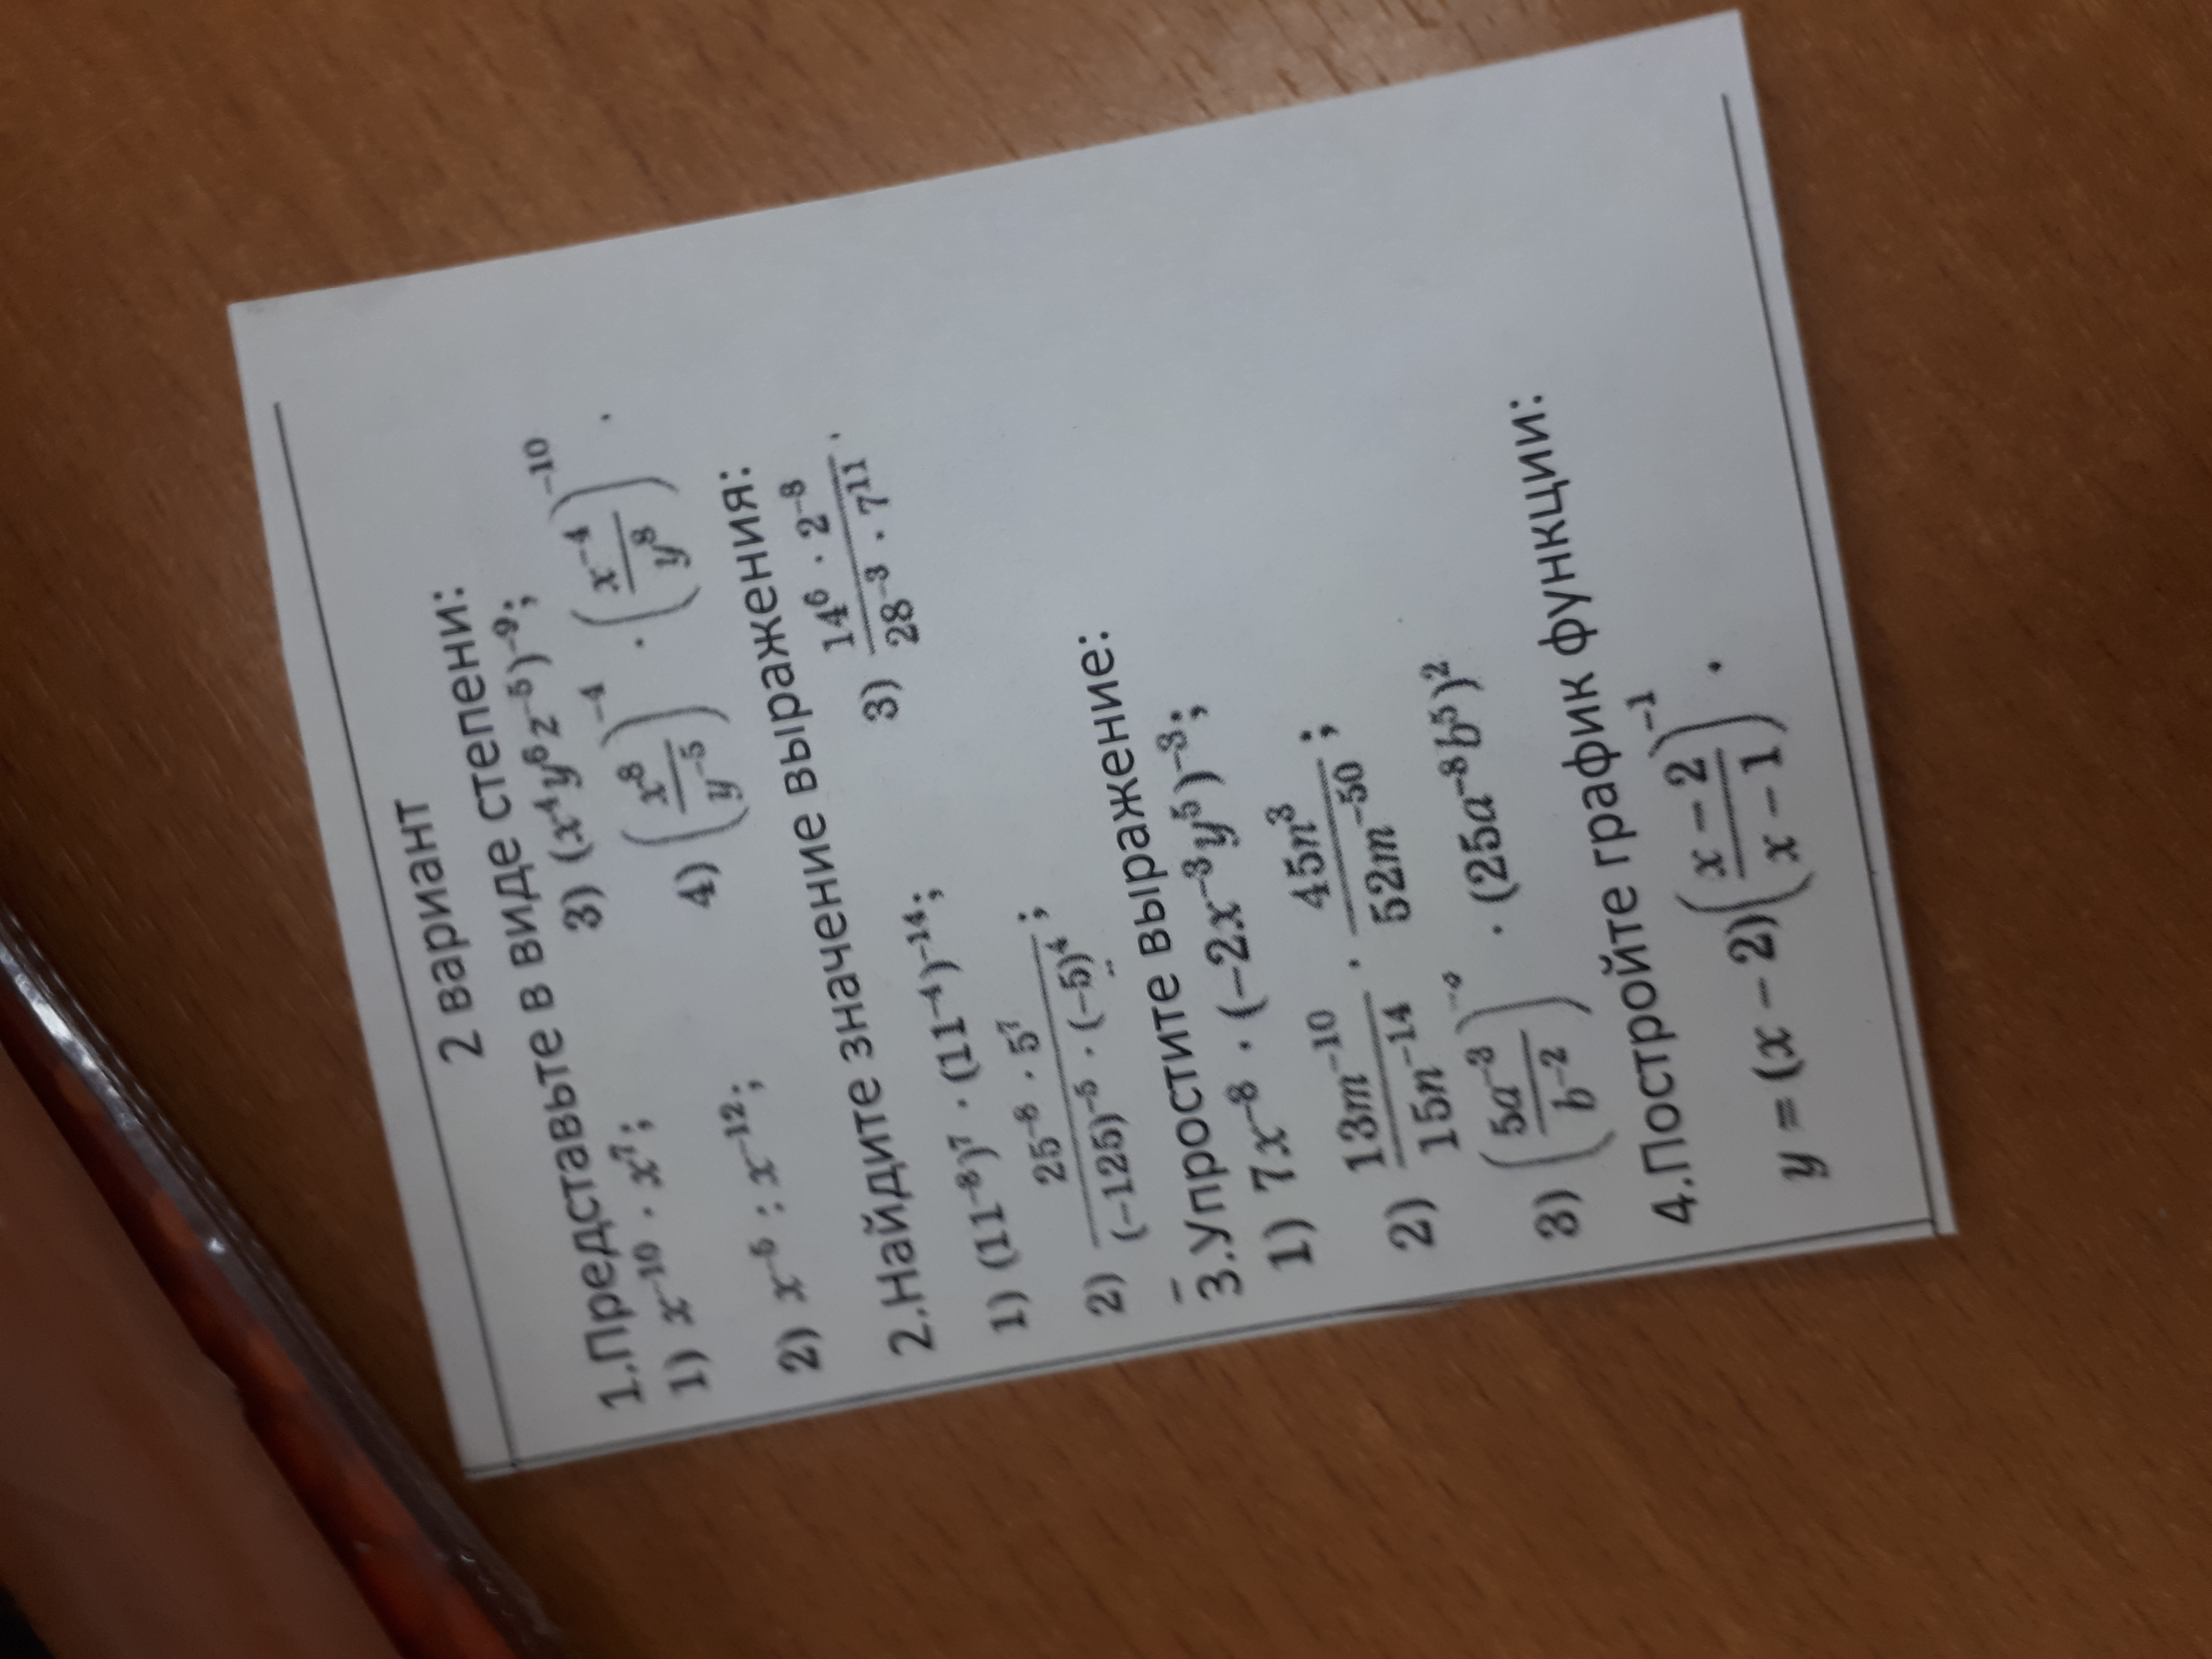 2 вариант
1.Представьте в виде степени:
1) x⁻¹⁰ · x⁷; 3) (x⁻⁴y⁶z⁻⁵)⁻⁹;
2) x⁻⁶ : x⁻¹²; 4) (x⁸/y⁻⁵)⁻⁴ · (x⁻⁴/y⁸)⁻¹⁰.
2.Найдите значение выражения:
1) (11⁻⁸)⁷ · (11⁻⁴)⁻¹⁴; 3) (14⁶ · 2⁻⁸)/(28⁻³ · 7¹¹).
2) (25⁻⁸ · 5⁷)/((−125)⁻⁵ · (−5)⁴);
3.Упростите выражение:
1) 7x⁻⁸ · (−2x⁻³y⁵)⁻³;
2) 13m⁻¹⁰/15n⁻¹⁴ · 45n³/52m⁻⁵⁰;
3) (5a⁻³/b⁻²) · (25a⁻⁸b⁵)²
4.Постройте график функции:
y = (x − 2)((x − 2)/(x − 1))⁻¹.